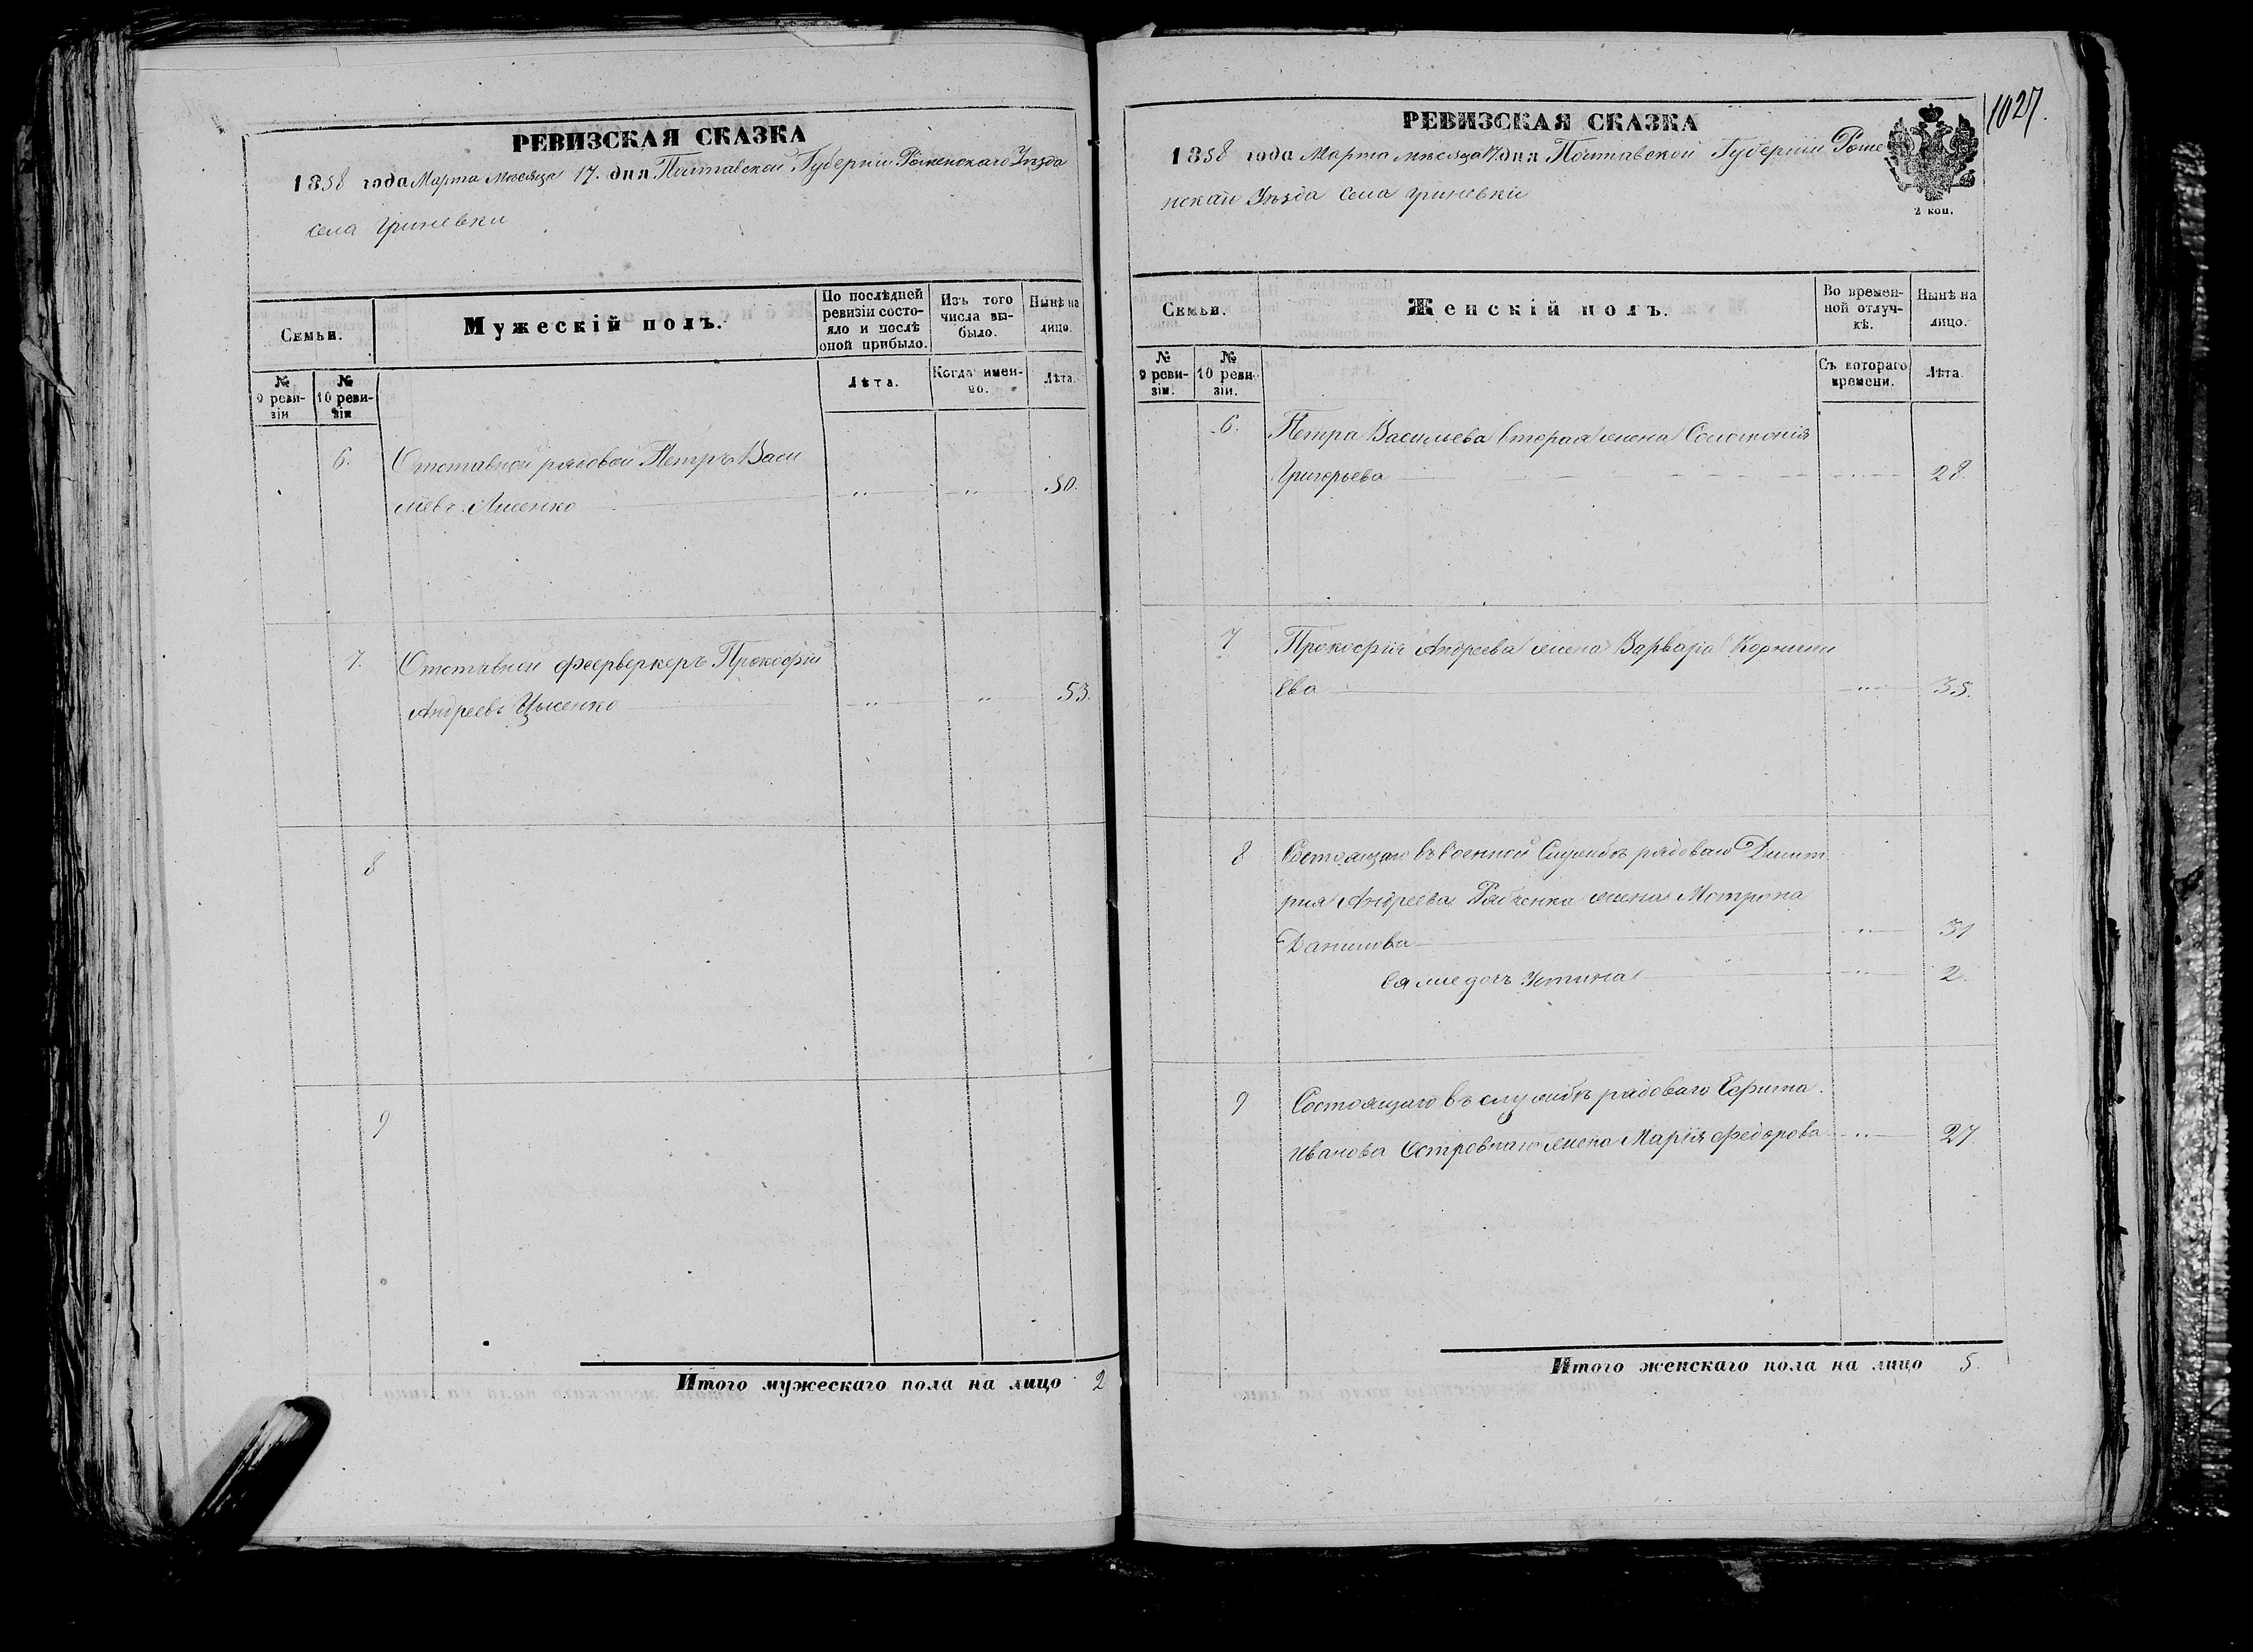 РЕВИЗСКАЯ СКАЗКА
1858 года Марта Месяца 17. дня Полтавской Губерніи Роменскаго Уѣзда
села Гриневки
Семьи.
Мужескій полъ.
По послѣдней ревизіи состояло и послѣ оной прибыло.
Изъ того числа выбыло.
Нынѣ на лицо.
№ 9 ревизіи
№ 10 ревизіи
Лѣта.
Когда именно.
Лѣта.
6. Отставной рядовой Петръ Васи
лієвъ Лисенко 50.
7. Отставной феерверкеръ Прокофій
Андреевъ 53.
8
9
Итого мужескаго пола на лицо 2
1027.
РЕВИЗСКАЯ СКАЗКА
1858 года Марта месяца 17 дня Полтавской Губерніи Роме
нскаго Уѣзда села Гриневки
2 коп.
Семьи.
Женскій полъ.
Во временной отлучкѣ.
Нынѣ на лицо.
№ 9 ревизіи.
№ 10 ревизіи.
Съ котораго времени.
Лѣта.
6. Петра Васильева вторая жена Соломонія
Григорьева 28.
7 Прокофія Андреева жена Варвара Корнили
ева 35.
8 Состоящаго въ военной Службѣ рядоваго Димит
рия Андреева Рябченка жена Мотрона
Данилова 31
Ея же дочь Устина 2.
9 Состоящаго въ службѣ рядоваго Ефима
Иванова Островнаго жена Марія Федорова 27.
Итого женскаго пола на лицо 5.